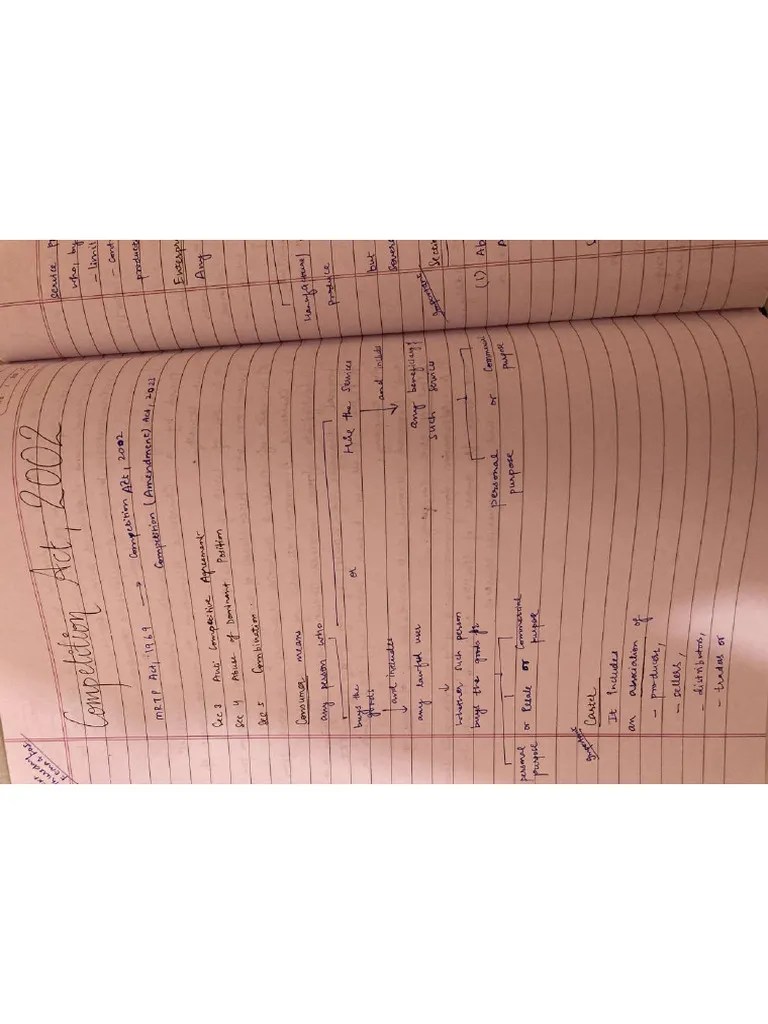 Competition Act, 2002
MRTP Act, 1969 → Competition Act, 2002
Competition (Amendment) Act, 2023
Sec 3 Anti Competitive Agreement
Sec 4 Abuse of Dominant Position
Sec 5 Combination
Consumer means
any person who
buys the goods or Hire the Services
and includes and includes
any lawful user any beneficiary of such service
whether such person
buys the goods for
personal purpose or Resale or Commercial purpose personal purpose or Commercial purpose
Important
Cartel
It Includes
an association of
- producers,
- sellers,
- distributors,
- traders or
service
who, by
- limit
- cont
product
Enterpr
Any
produce
but
Important
Secti
(1) Ab
A